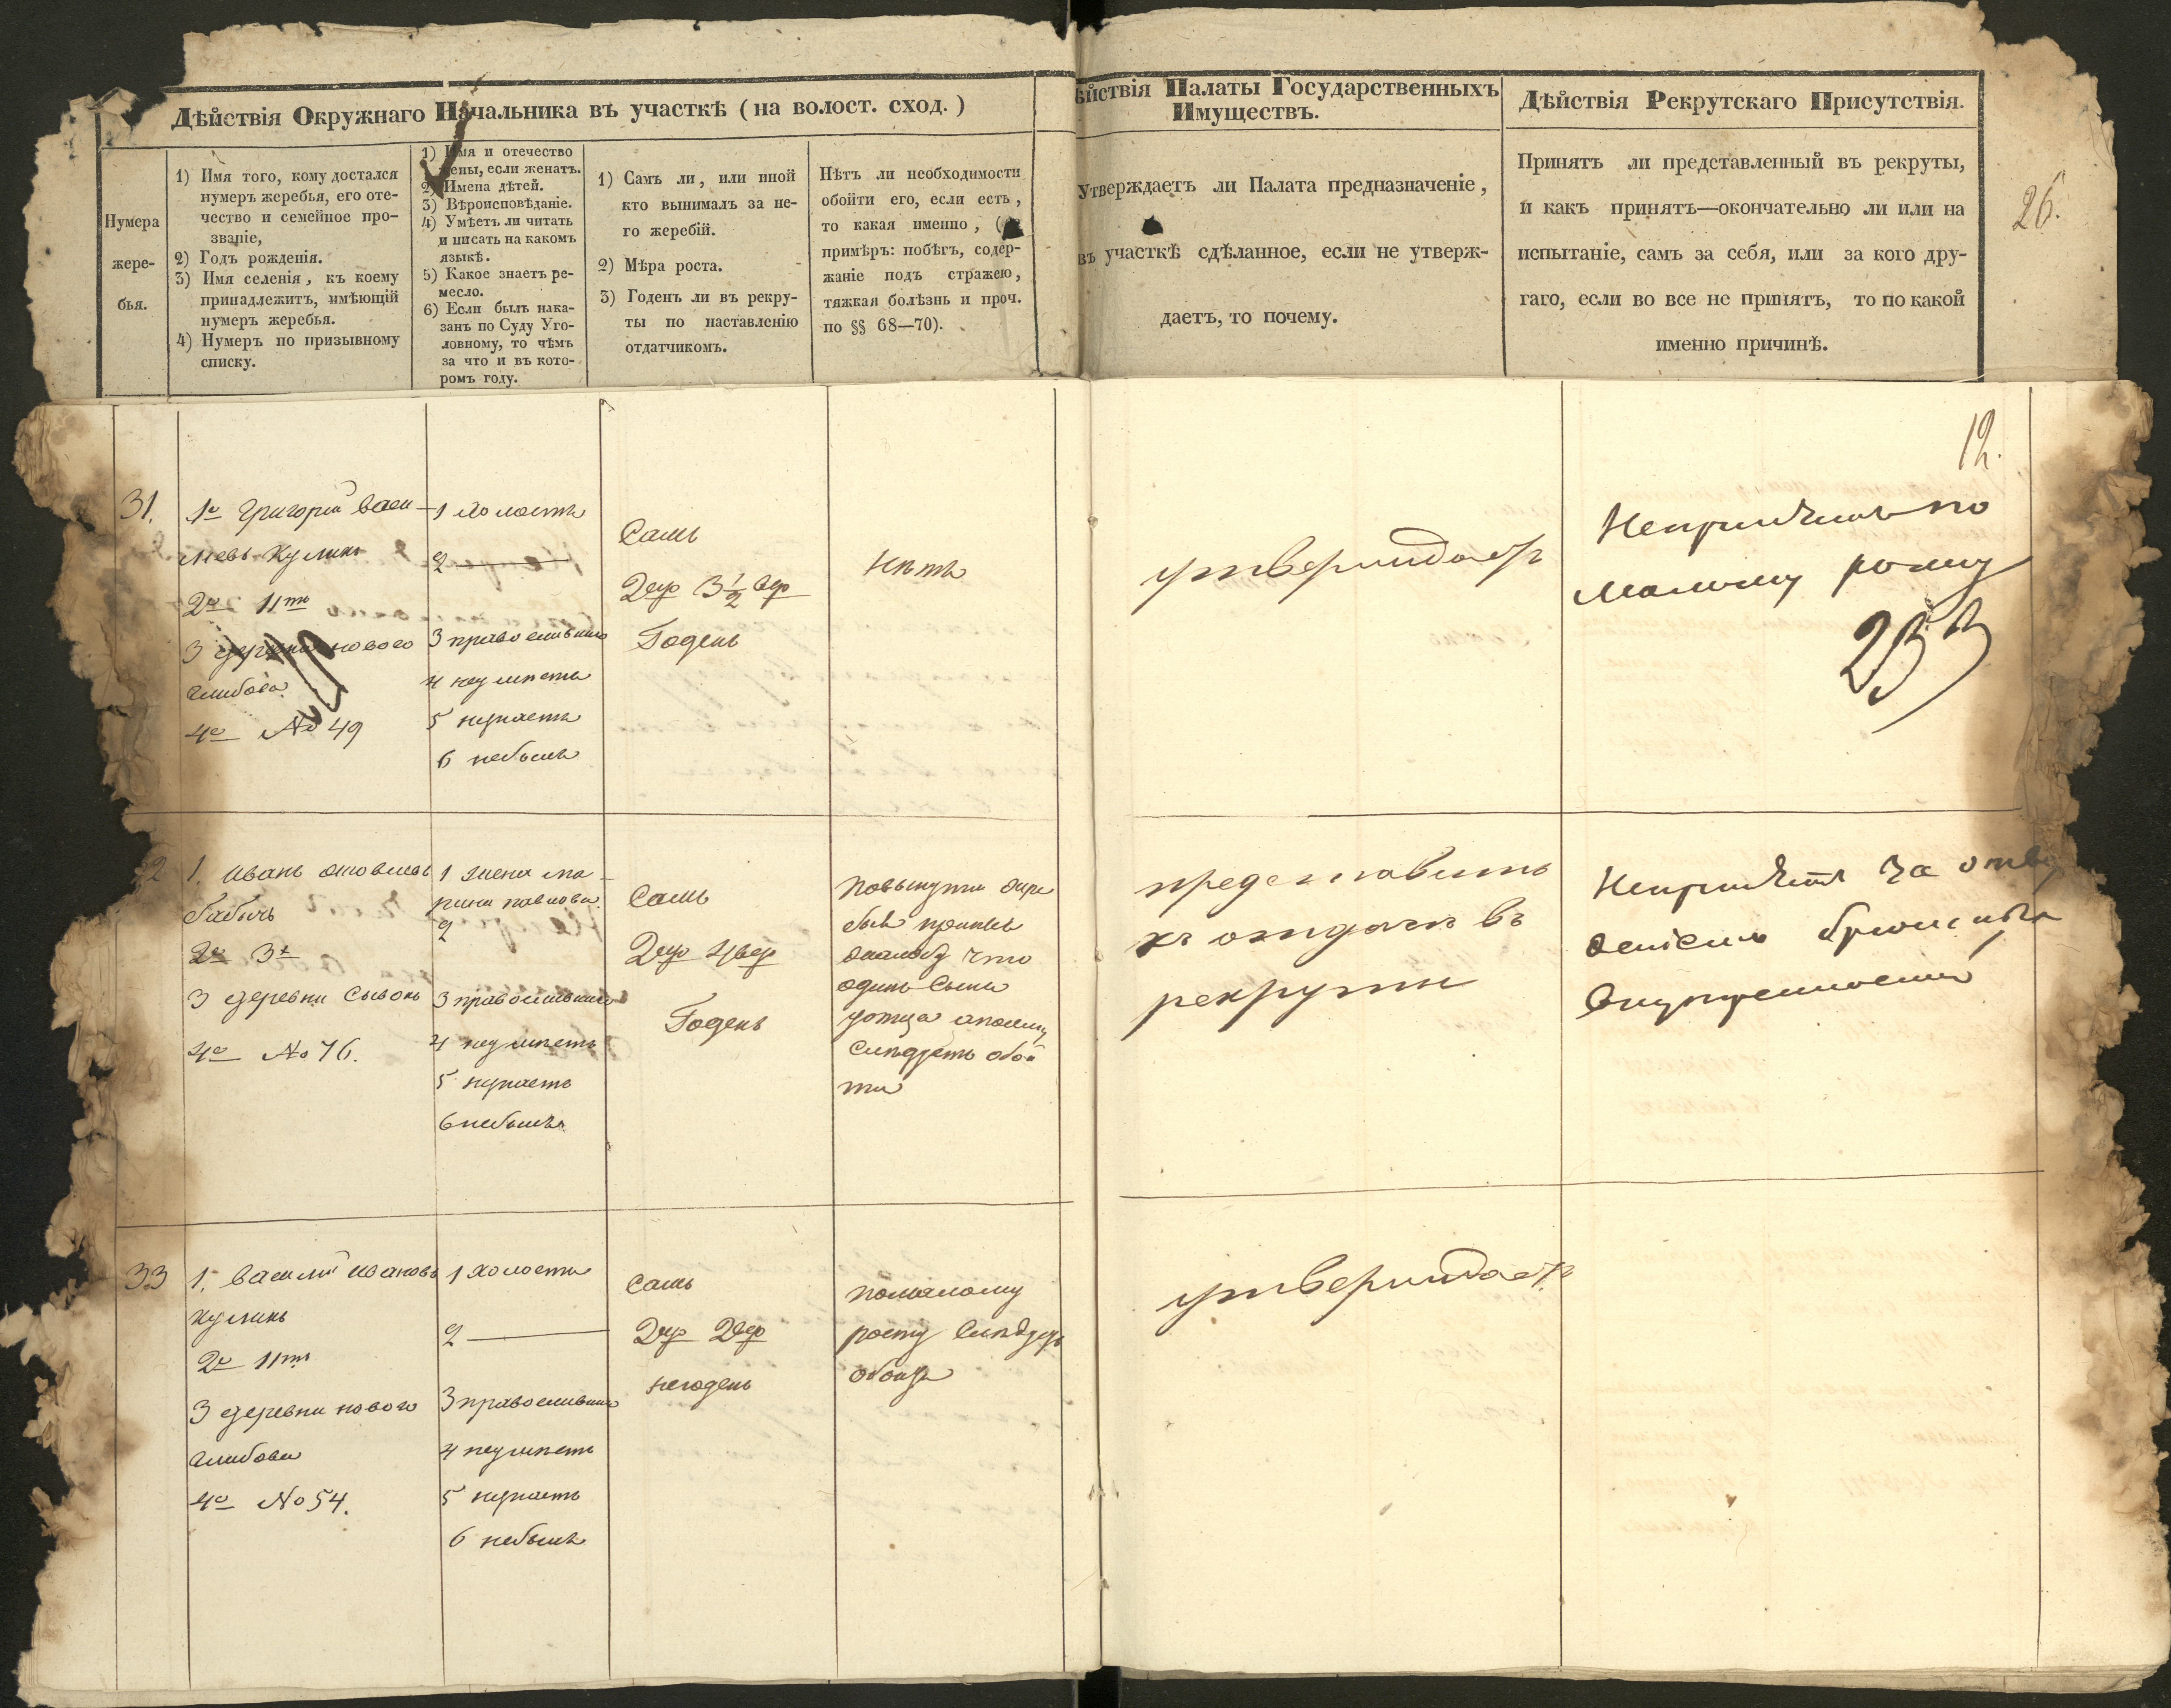 Дѣйствія Окружнаго Начальника въ участкѣ (на волост. сход.)
Нумера
жере-
бья.
1) Имя того, кому достался
нумеръ жеребья, его оте-
чество и семейное про-
званіе,
2) Годъ рожденія.
3) Имя селенія, къ коему
принадлежитъ, имѣющій
нумеръ жеребья.
4) Нумеръ по призывному
списку.
1) Имя и отечество
жены, если женатъ.
2) Имена дѣтей.
3) Вѣроисповѣданіе.
4) Умѣетъ ли читать
и писать на какомъ
языкѣ.
5) Какое знаетъ ре-
месло.
6) Если былъ нака-
занъ по Суду Уго-
ловному, то чѣмъ
за что и въ кото-
ромъ году.
1) Самъ ли, или иной
кто вынималъ за не-
го жеребій.
2) Мѣра роста.
3) Годенъ ли въ рекру-
ты по наставленію
отдатчикомъ.
Нѣтъ ли необходимости
обойти его, если есть,
то какая именно, (
примѣръ: побѣгъ, содер-
жаніе подъ стражею,
тяжкая болѣзнь и проч.
по §§ 68—70).
ѣйствія Палаты Государственныхъ
Имуществъ.
Утверждаетъ ли Палата предназначеніе,
въ участкѣ сдѣланное, если не утверж-
даетъ, то почему.
Дѣйствія Рекрутскаго Присутствія.
Принятъ ли представленный въ рекруты,
и какъ принятъ—окончательно ли или на
испытаніе, самъ за себя, или за кого дру-
гаго, если во все не принятъ, то по какой
именно причинѣ.
26.
12.
31.
1е Григорій Васи-
льевъ Куликъ
2е 11го
3 деревни нового
4е № 49
1 холостъ
2 —
3 православнаго
4 неумѣетъ
5 незнаетъ
6 небылъ
Самъ
2 ар 3 1/2 вер
Годенъ
Нѣтъ
утверждаетъ
Непринятъ по
малому росту
2
1. Иванъ
Бабичъ
2е 3
3 деревни
4е № 76.
1 жена Ма-
рина Павлова
2
3 православнаго
4 неумѣетъ
5 незнаетъ
6 небылъ
Самъ
2 ар 4 вер
Годенъ
что
одинъ сынъ
уотца апотому
слѣдуетъ обой
ти
представить
къ отдачѣ въ
рекруты
Непринятъ за
внутренностей
33
1. Василій Ивановъ
Куликъ
2е 11го
3 деревни нового
4е № 54.
1 холостъ
2 —
3 православнаго
4 неумѣетъ
5 незнаетъ
6 небылъ
Самъ
2 ар 2 вер
негоденъ
помалому
росту слѣдуетъ
утверждаетъ